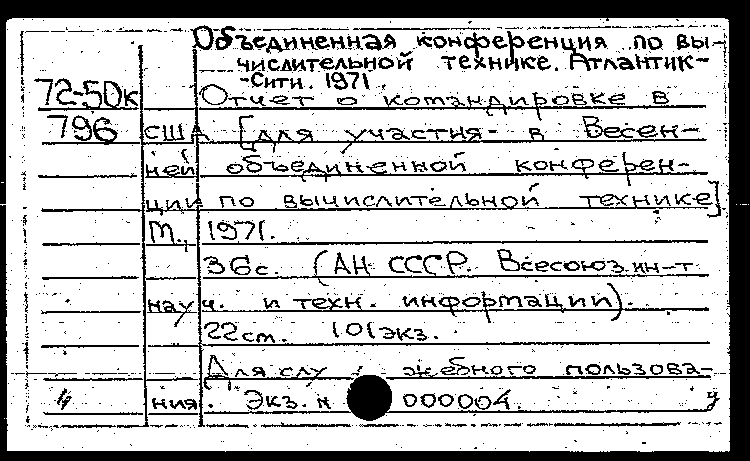 Объединенная конференция по вы-
числительной технике. Атлантик-
-Сити. 1971.
72-50к Отчет о командировке в
796 США [для участия в Весен-
ней объединенной конферен-
ции по вычислительной технике]
М., 1971.
36с. (АН СССР. Всесоюз. ин-т
науч. и техн. информации).
22см. 101экз.
Для служебного пользова-
ния. Экз. N 000004.